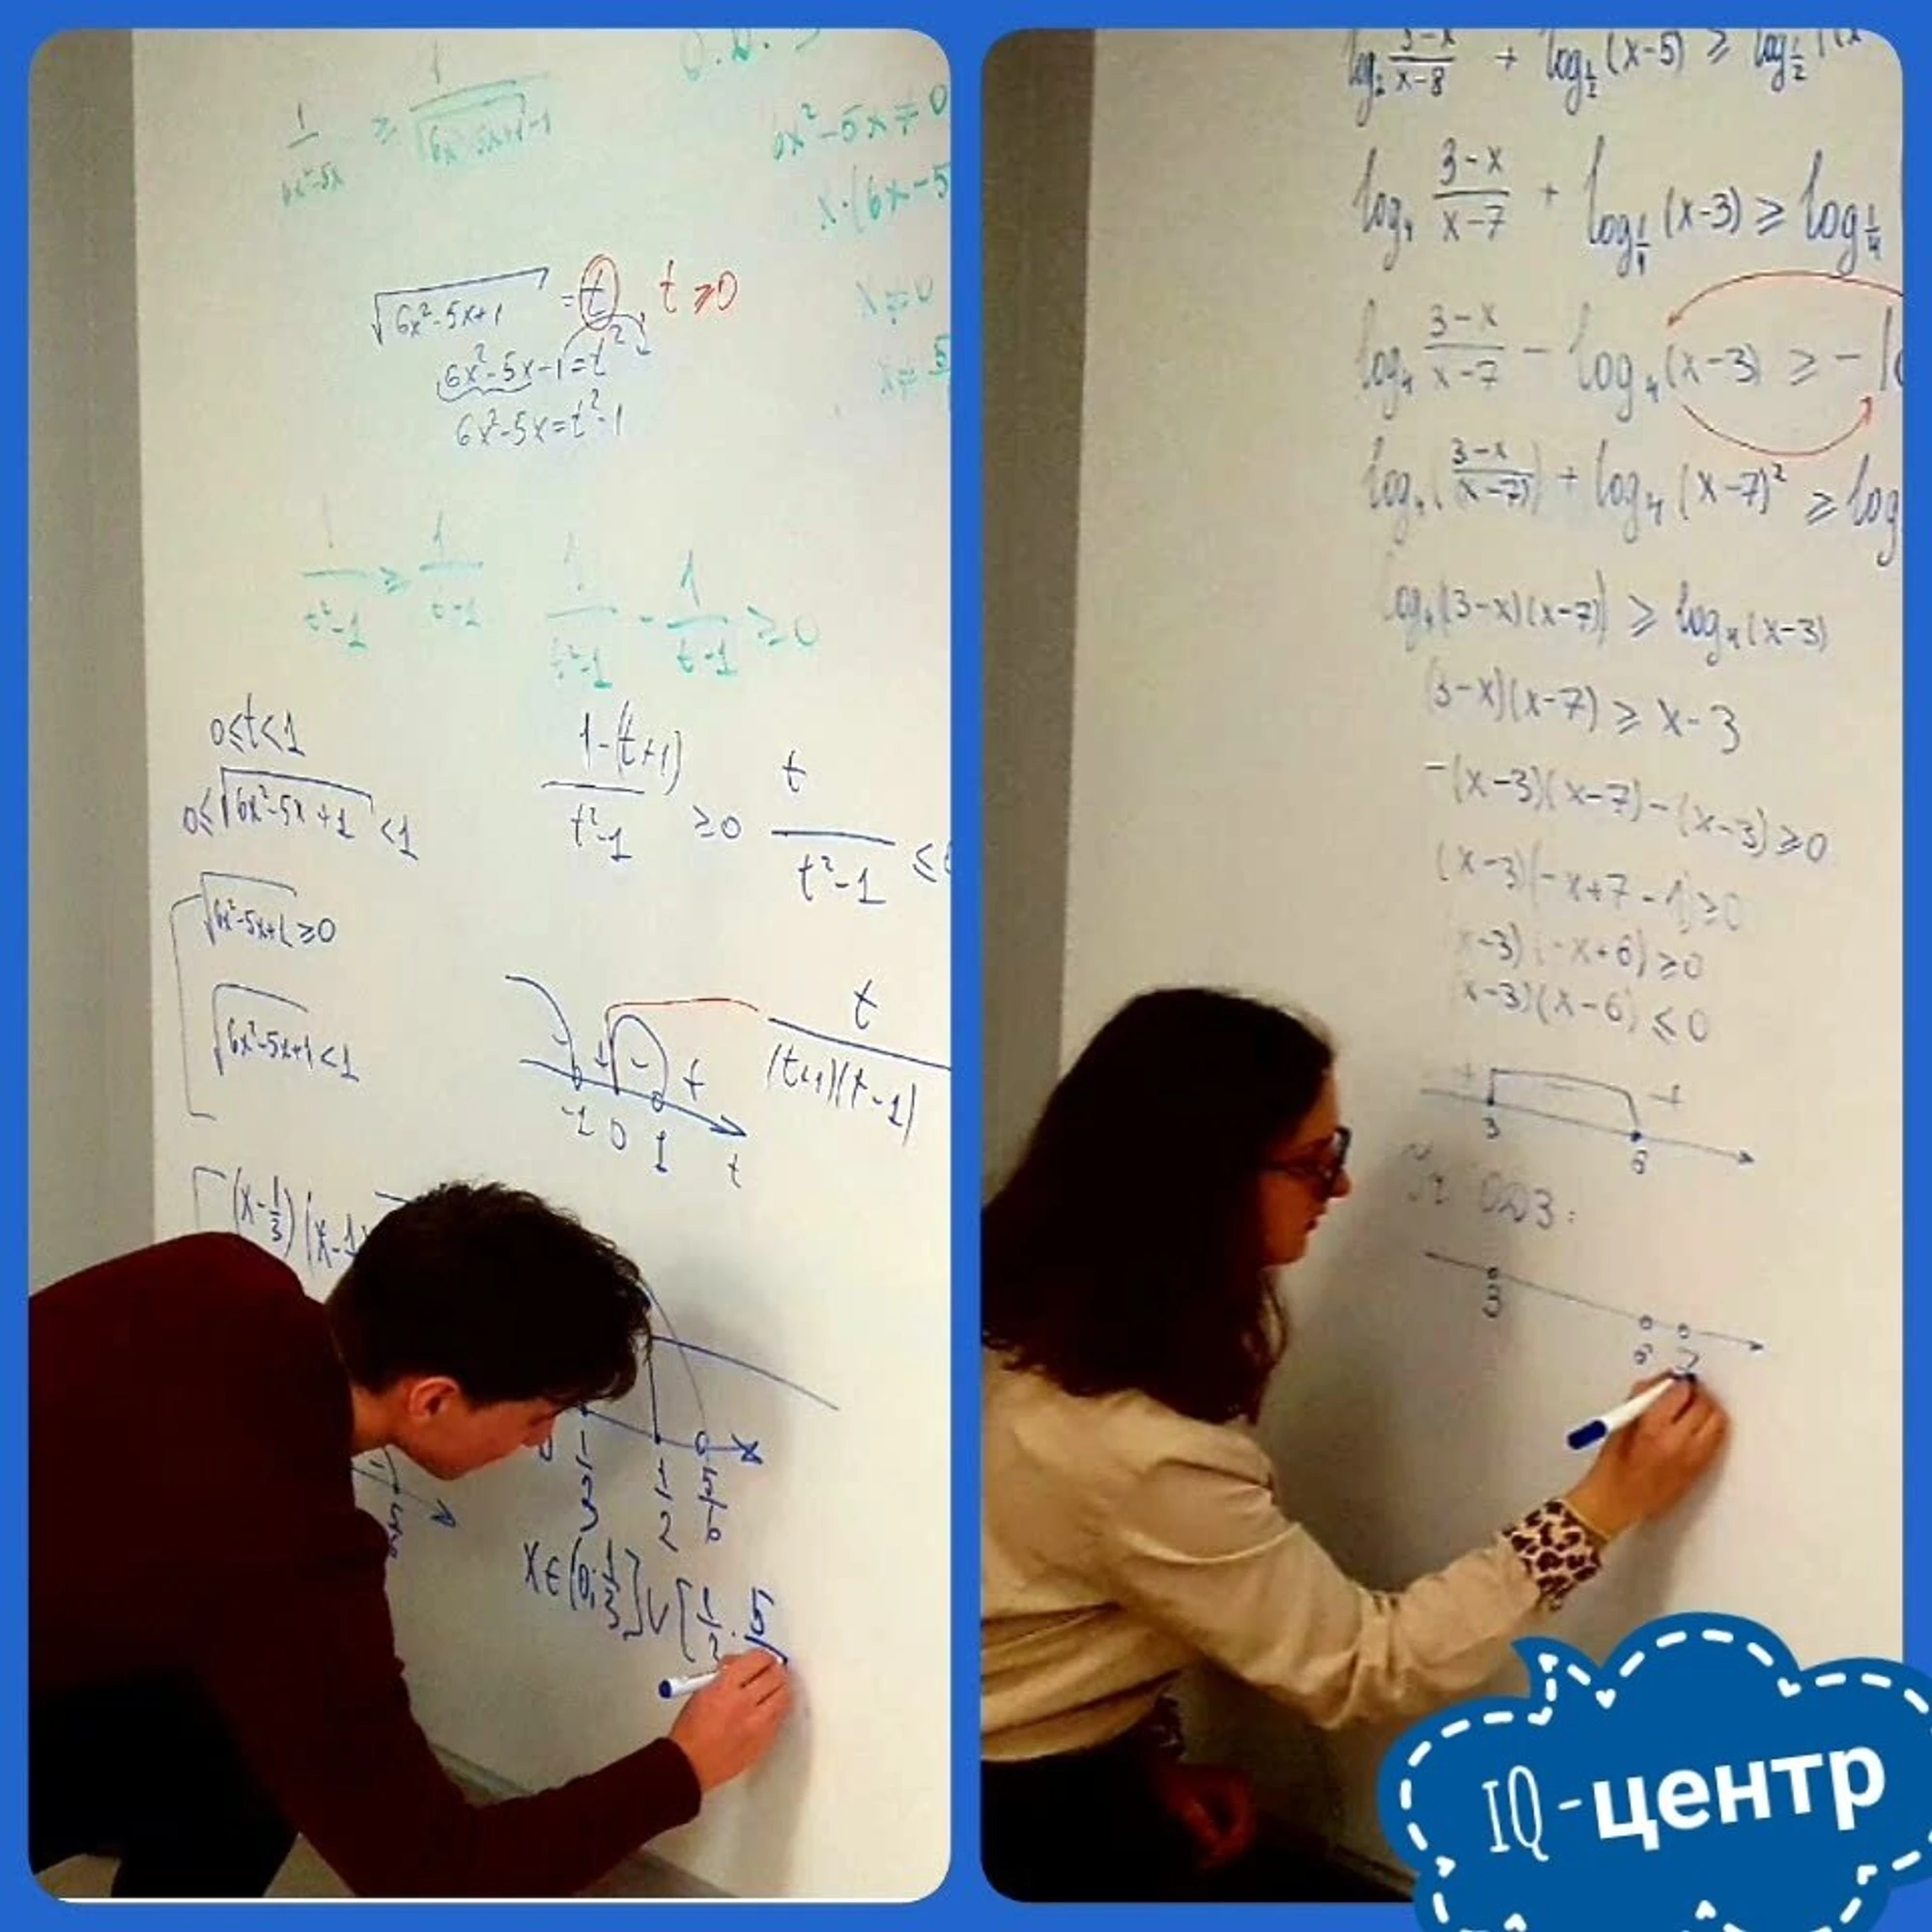 1/(6x²-5x) ≥ 1/(√(6x²-5x+1)-1)
6x²-5x≠0
x·(6x-5
x≠0
x≠5
√(6x²-5x+1) =t t ⩾0
6x²-5x-1=t²
6x²-5x=t²-1
1/(t²-1) ≥ 1/(t-1) 1/(t²-1) - 1/(t-1) ≥0
0≤t<1
(1-(t+1))/(t²-1) ≥0 t/(t²-1) ≤
0≤√(6x²-5x+1) <1
√(6x²-5x+1) ≥0
√(6x²-5x+1) <1
t/((t+1)(t-1))
- + - +
-1 0 1 t
(x-1/3)(x-1
1/3 1/2 5/6 x
x∈(0;1/3]∪[1/2; 5
3-x/x-8 + log½(x-5) ≥ log½
log₄ (3-x)/(x-7) + log¼(x-3) ≥ log¼
log₄ (3-x)/(x-7) - log₄(x-3) ≥ -
log₄((3-x)/(x-7)) + log₄(x-7)² ≥ log
log₄(3-x)(x-7) ≥ log₄(x-3)
(3-x)(x-7) ≥ x-3
-(x-3)(x-7)-(x-3)≥0
(x-3)(-x+7-1)≥0
x-3)(-x+6)≥0
x-3)(x-6)≤0
+ - +
3 6
ОДЗ:
3
6 7
IQ-центр